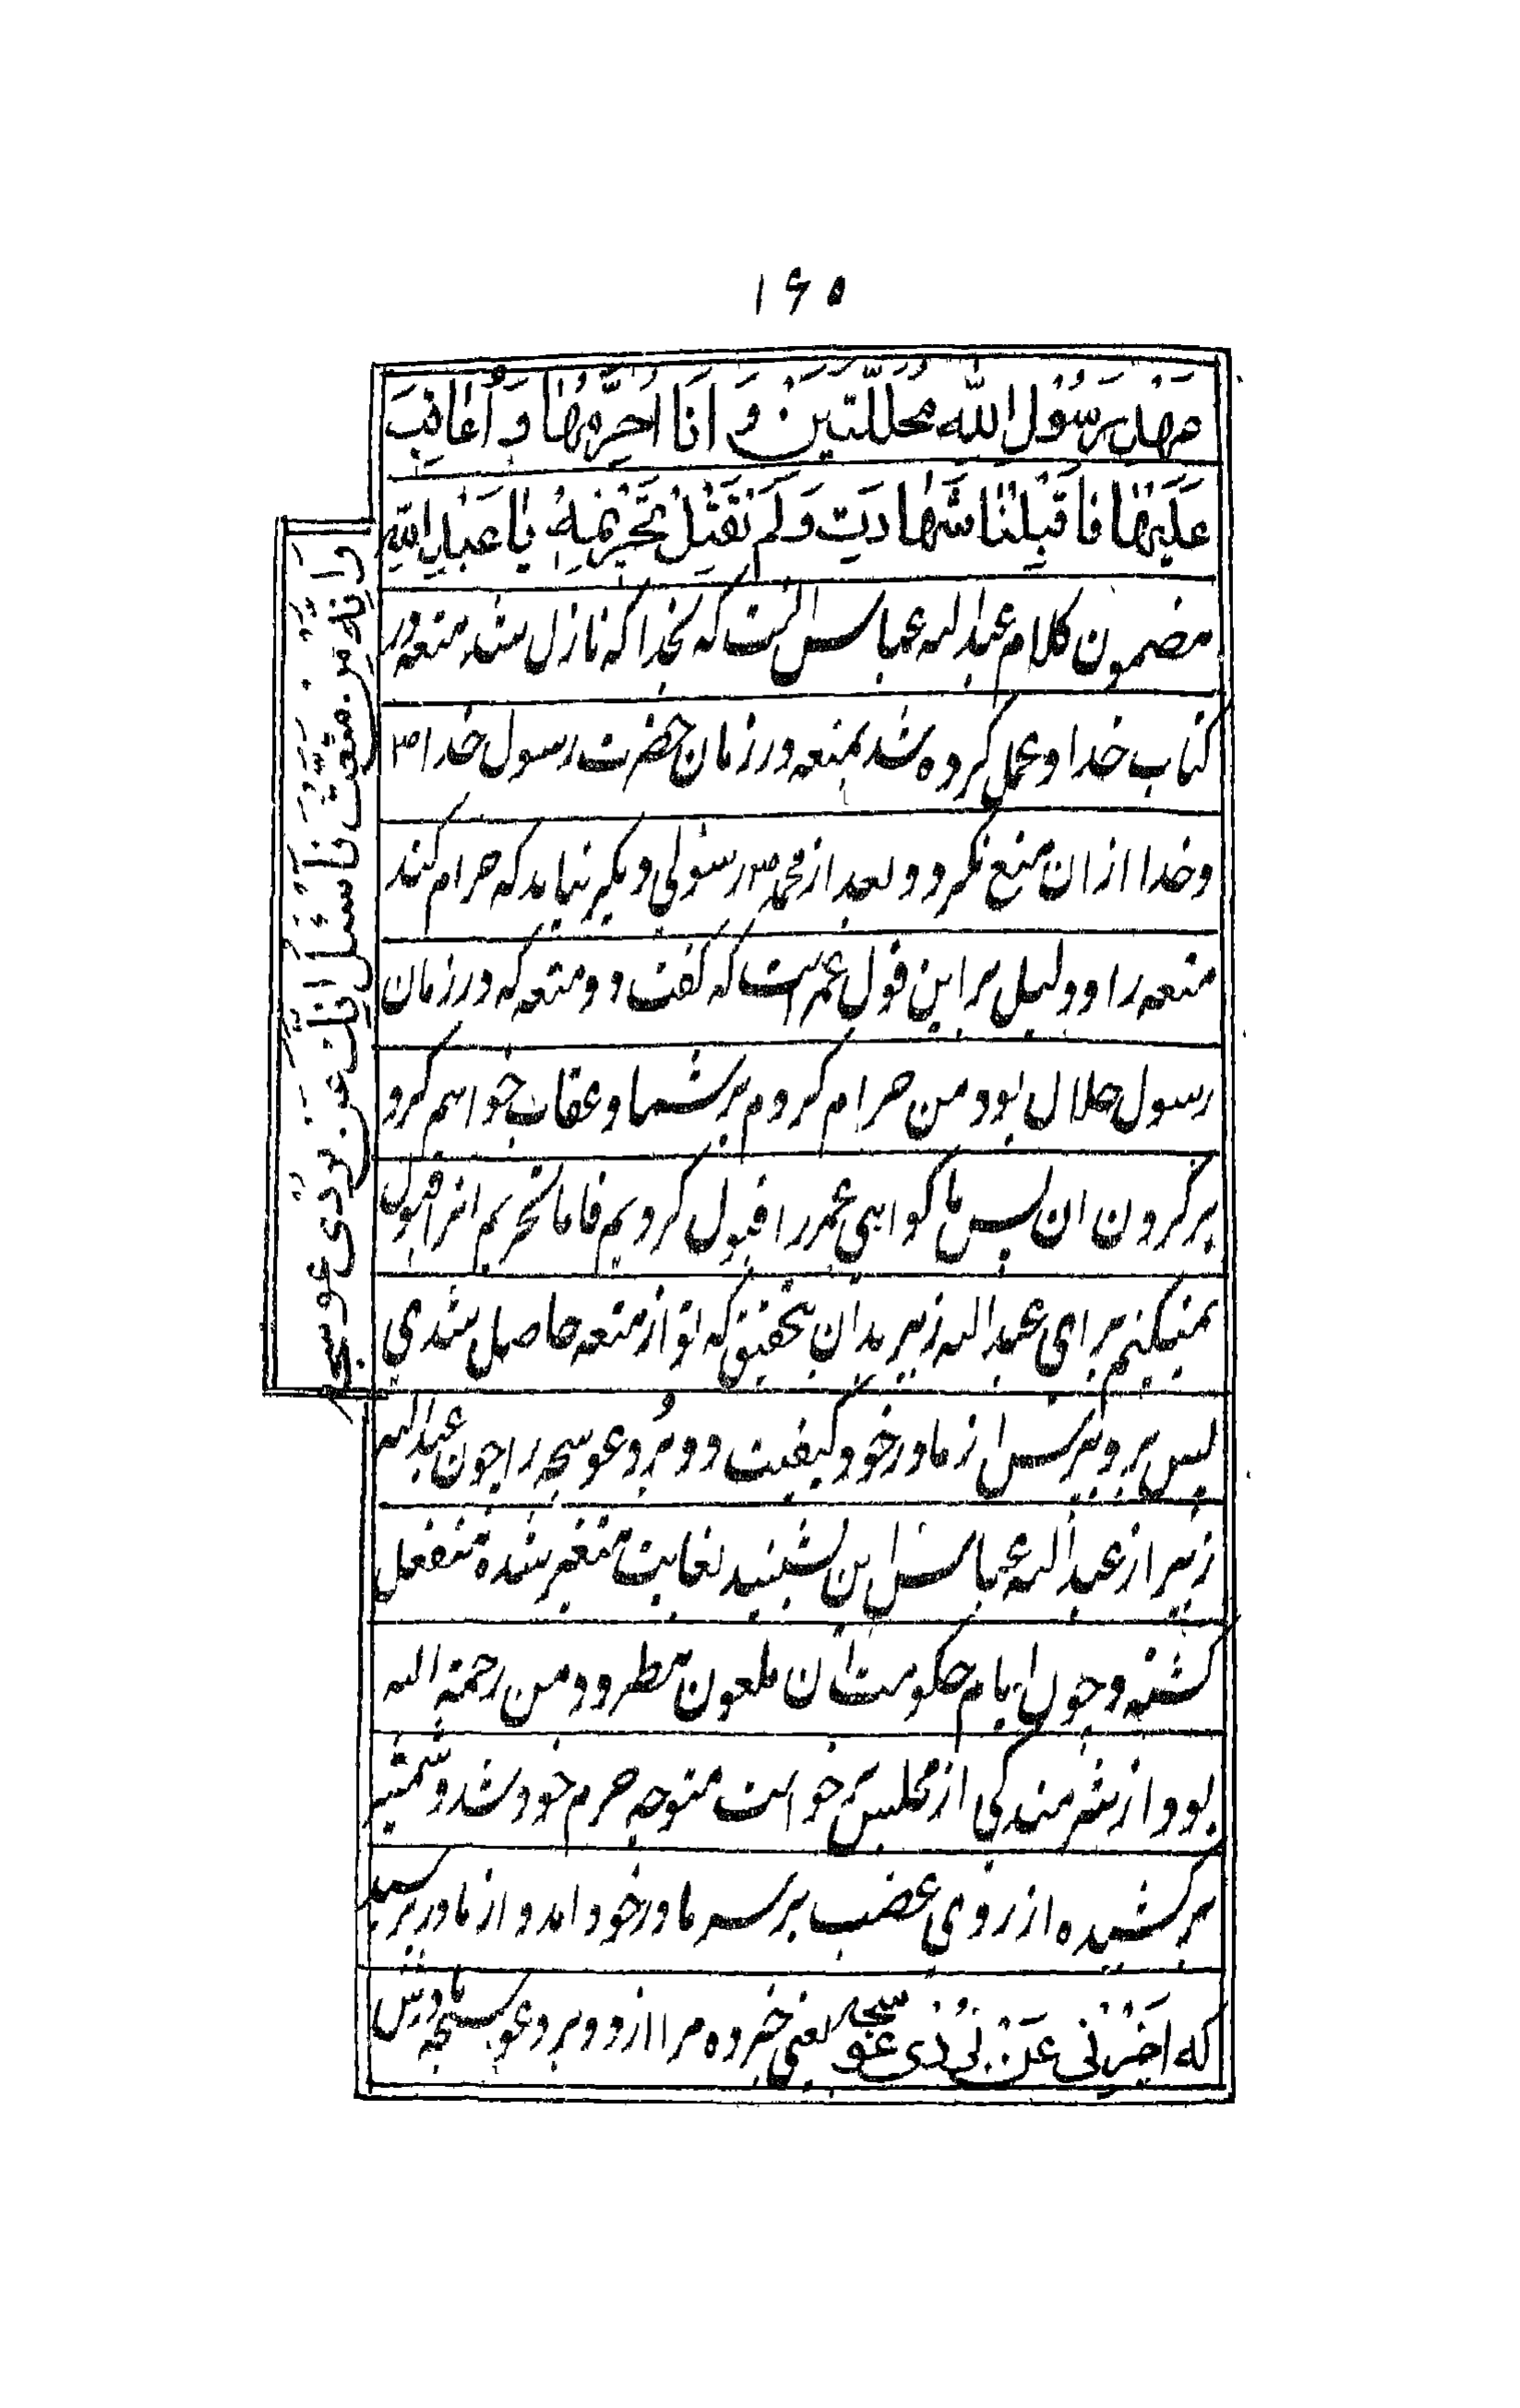 ۱۶۵
عَهْدِ رَسُوْلِ اللّٰهِ مُحَلَّلَتَيْنِ وَ اَنَا اُحَرِّمُهُمَا وَ اُعَاقِبُ
عَلَيْهَا فَاقَبِلْنَا شَهَادَتَ وَلَمْ نَقْبَلْ تَحْرِيْمَهُ يَا عَبْدَ اللّٰهِ
وَاِنَّكَ مِنْ مُتْعَةٍ فَاسْئَلْ اُمَّكَ عَنْ بُرْدَىْ عَوْسَجَه
مضمون کلام عبداله عباس انست که بخدا که نازل شد متعه در
کتاب خدا و عمل کرده شد بمتعه در زمان حضرت رسول خدا ص
و خدا ازان منع نکرد و بعد از محمد ص رسولی دیگر نیاید که حرام کند
متعه را و دلیل بر این قول عمر است که گفت دو متعه که در زمان
رسول حلال بود من حرام کردم بر شما و عقاب خواهم کرد
بر کردن ان پس ما گواهی عمر را قبول کردیم فاما تحریم انرا قبول
نمیکنیم برای عبداله زبیر بدان بتحقیق که تو از متعه حاصل شدی
پس برو بپرس از مادر خود کیفیت دو بُرد عوسجه را چون عبداله
زبیر از عبداله عباس این بشنید بغایت متغیر شده منفعل
گشته و چون ایام حکومت ان ملعون مطرود من رحمة اله
بود از شرمندگی از مجلس برخواست متوجه حرم خود شد و شمشیر
بر کشیده از روی غضب بر سر مادر خود امد و از مادر پرسید
که اَخْبِرْنِی عَنْ بُرْدَی عَوْسَجَه یعنی خبر ده مرا از دو برد عوسجه مادرش